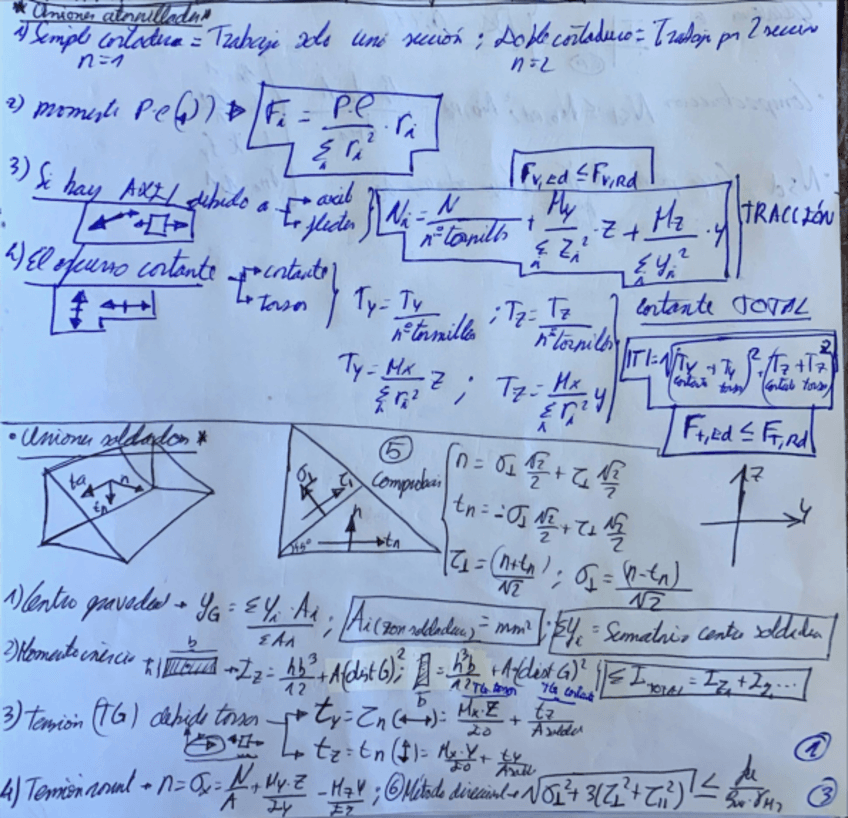 * Uniones atornilladas *
1) Simple cortadura = Trabaja solo una sección ; Doble cortadura = Trabaja por 2 seccio
n=1 n=2
2) momento P·e ⇒ Fi = P·e / Σ ri² · ri
Fv,Ed ≤ Fv,Rd
3) Si hay AXIL debido a → axil → flector } Ni = N / nº tornillos + My / Σ Zi² · Z + Mz / Σ yi² · y | TRACCIÓN
4) El esfuerzo cortante → cortante → torsor } Ty = Ty / nº tornillos ; Tz = Tz / nº tornillos
Ty = Mx / Σ ri² Z ; Tz = Mx / Σ ri² y
cortante TOTAL
|T| = √(Ty cortante + Ty torsor)² + (Tz cortante + Tz torsor)²
Ft,Ed ≤ Ft,Rd
• Uniones soldadas *
ta n tn
σ⊥ τ⊥ n tn 45°
⑤ Comprobar
n = σ⊥ √2/2 + τ⊥ √2/2
tn = -σ⊥ √2/2 + τ⊥ √2/2
τ⊥ = (n+tn)/√2 ; σ⊥ = (n-tn)/√2
Z
Y
1) Centro gravedad → yG = Σ Yi · Ai / Σ Ai ; Ai (zona soldadura) = mm² ; ΣYi = Sumatorio centro soldadura
2) Momento inercia h b → Iz = hb³/12 + A·(dist G)² ; b = h³b/12 + A·(dist G)² ; Σ I TOTAL = Iz1 + Iz2 ...
TG torsor TG cortante
3) Tensión (TG) debido torsor → ty = τn (↔) = Mx·Z/I0 + tz/A soldad
→ tz = tn (↕) = Mx·Y/I0 + ty/A sold
①
4) Tensión normal → n = σx = N/A + My·Z/Iy - Mz·Y/Iz ; ⑥ Método direccional → √σ⊥² + 3(τ⊥² + τ||²) ≤ fu / βw·γM2
③